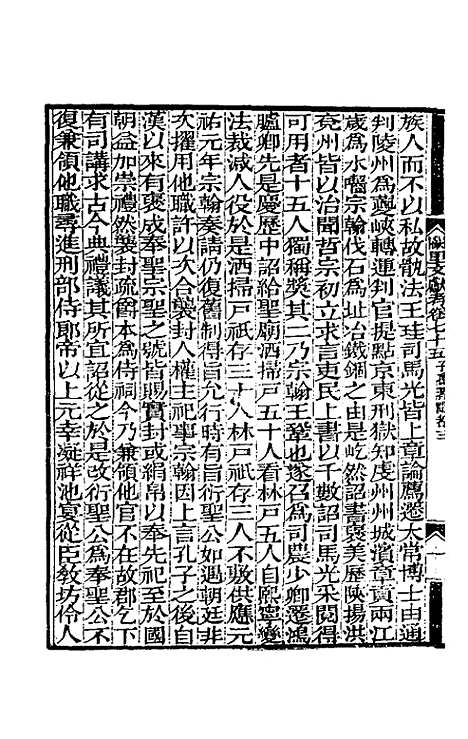 族人而不以私故骫法王珪司馬光皆上章論薦遷太常博士由通
判陵州為夔峽轉運判官提點京東刑獄知虔州州城濱章貢兩江
歲為水囓宗翰伐石為址冶鐵錮之由是屹然詔書褒美歷陝揚洪
兗州皆以治聞哲宗初立求言吏民上書以千數詔司馬光采閱得
可用者十五人獨稱獎其二乃宗翰王鞏也遂召為司農少卿遷鴻
臚卿先是慶歷中詔給聖廟洒掃戶五十人看林戶五人自熙寧變
法裁減人役於是洒掃戶祇存三十人林戶祇存三人不敷供應元
祐元年宗翰奏請仍復舊制得旨允行時有旨衍聖公如遇朝廷非
次擢用他職許以次合襲封人權主祀事宗翰因上言孔子之後自
漢以來有褒成奉聖宗聖之號皆賜實封或縑帛以奉先祀至於國
朝益加崇禮然襲封疏爵本為侍祠今乃兼領他官不在故郡乞下
有司講求古今典禮議其所宜詔從之於是改衍聖公為奉聖公不
復兼領他職尋進刑部侍郎帝以上元幸凝祥池宴從臣教坊伶人